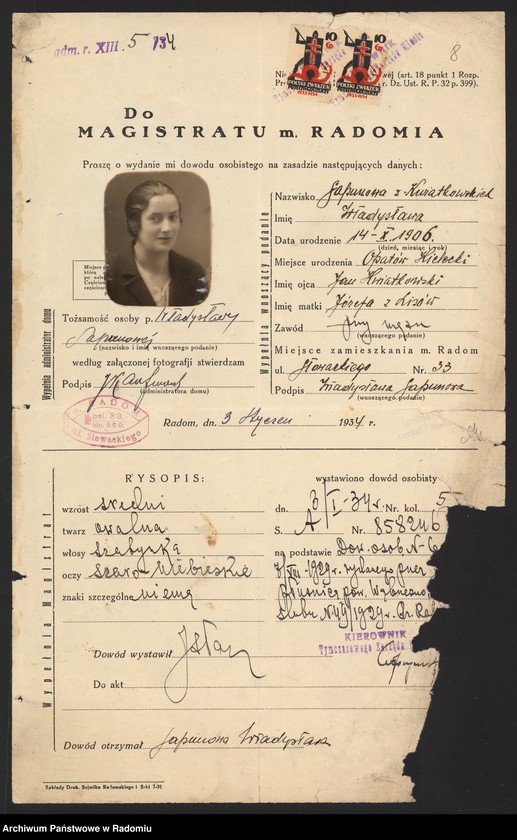 adm. r. XIII. 5 / 34
8
10 G 10 G
POLSKI ZWIĄZEK
(art. 18 punkt 1 Rozp.
Dz. Ust. R. P. 32 p. 399).
Do
MAGISTRATU m. RADOMIA
Proszę o wydanie mi dowodu osobistego na zasadzie następujących danych:
Wypełnia wnoszący podanie
Nazwisko Gapunowa z Kwiatkowskich
Imię Władysława
Data urodzenie 14-X-1906.
(dzień, miesiąc i rok)
Miejsce urodzenie Opatów Kielecki
Imię ojca Jan Kwiatkowski
Imię matki Józefa z Lisów
Zawód przy mężu
(wnoszącego podanie)
Miejsce zamieszkania m. Radom
ul. Słowackiego Nr. 33
Podpis Władysława Gapunowa
(wnoszącego podanie)
Wypełnia administrator domu
Tożsamość osoby p. Władysławy
Gapunowej
(nazwisko i imię wnoszącego podanie)
według załączonej fotografii stwierdzam
Podpis
(administratora domu)
RADOM
ul. Słowackiego
Radom, dn. 3 Styczeń 1934 r.
Wypełnia Magistrat
RYSOPIS:
wzrost średni
twarz owalna
włosy szatynka
oczy szaro-niebieskie
znaki szczególne niema
wystawiono dowód osobisty
dn. 3/I-34 r. Nr. kol. 5
S. A Nr. 858246
na podstawie Dow. osob. N
1929 r. wydanego przez
pow.
ślubu N 49/1929 r.
KIEROWNIK
Tymczasowego Zarządu
Dowód wystawił
Do akt
Dowód otrzymał Gapunowa Władysława
Zakłady Druk. Sejmiku Radomskiego
Archiwum Państwowe w Radomiu